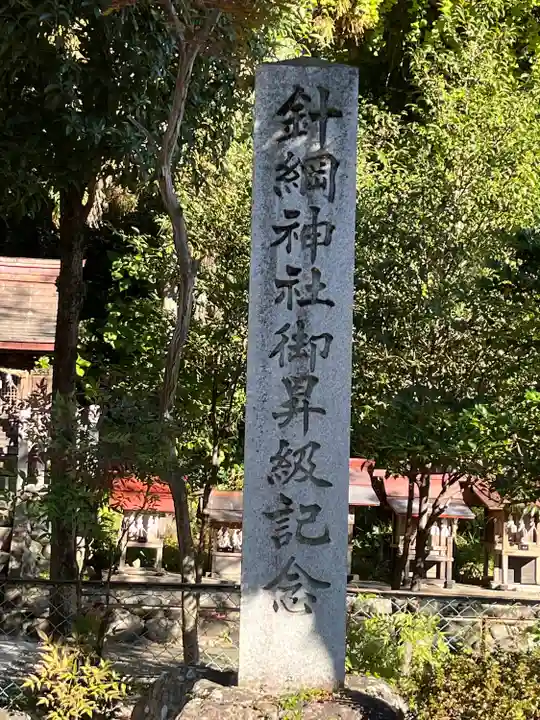 針綱神社御昇級記念